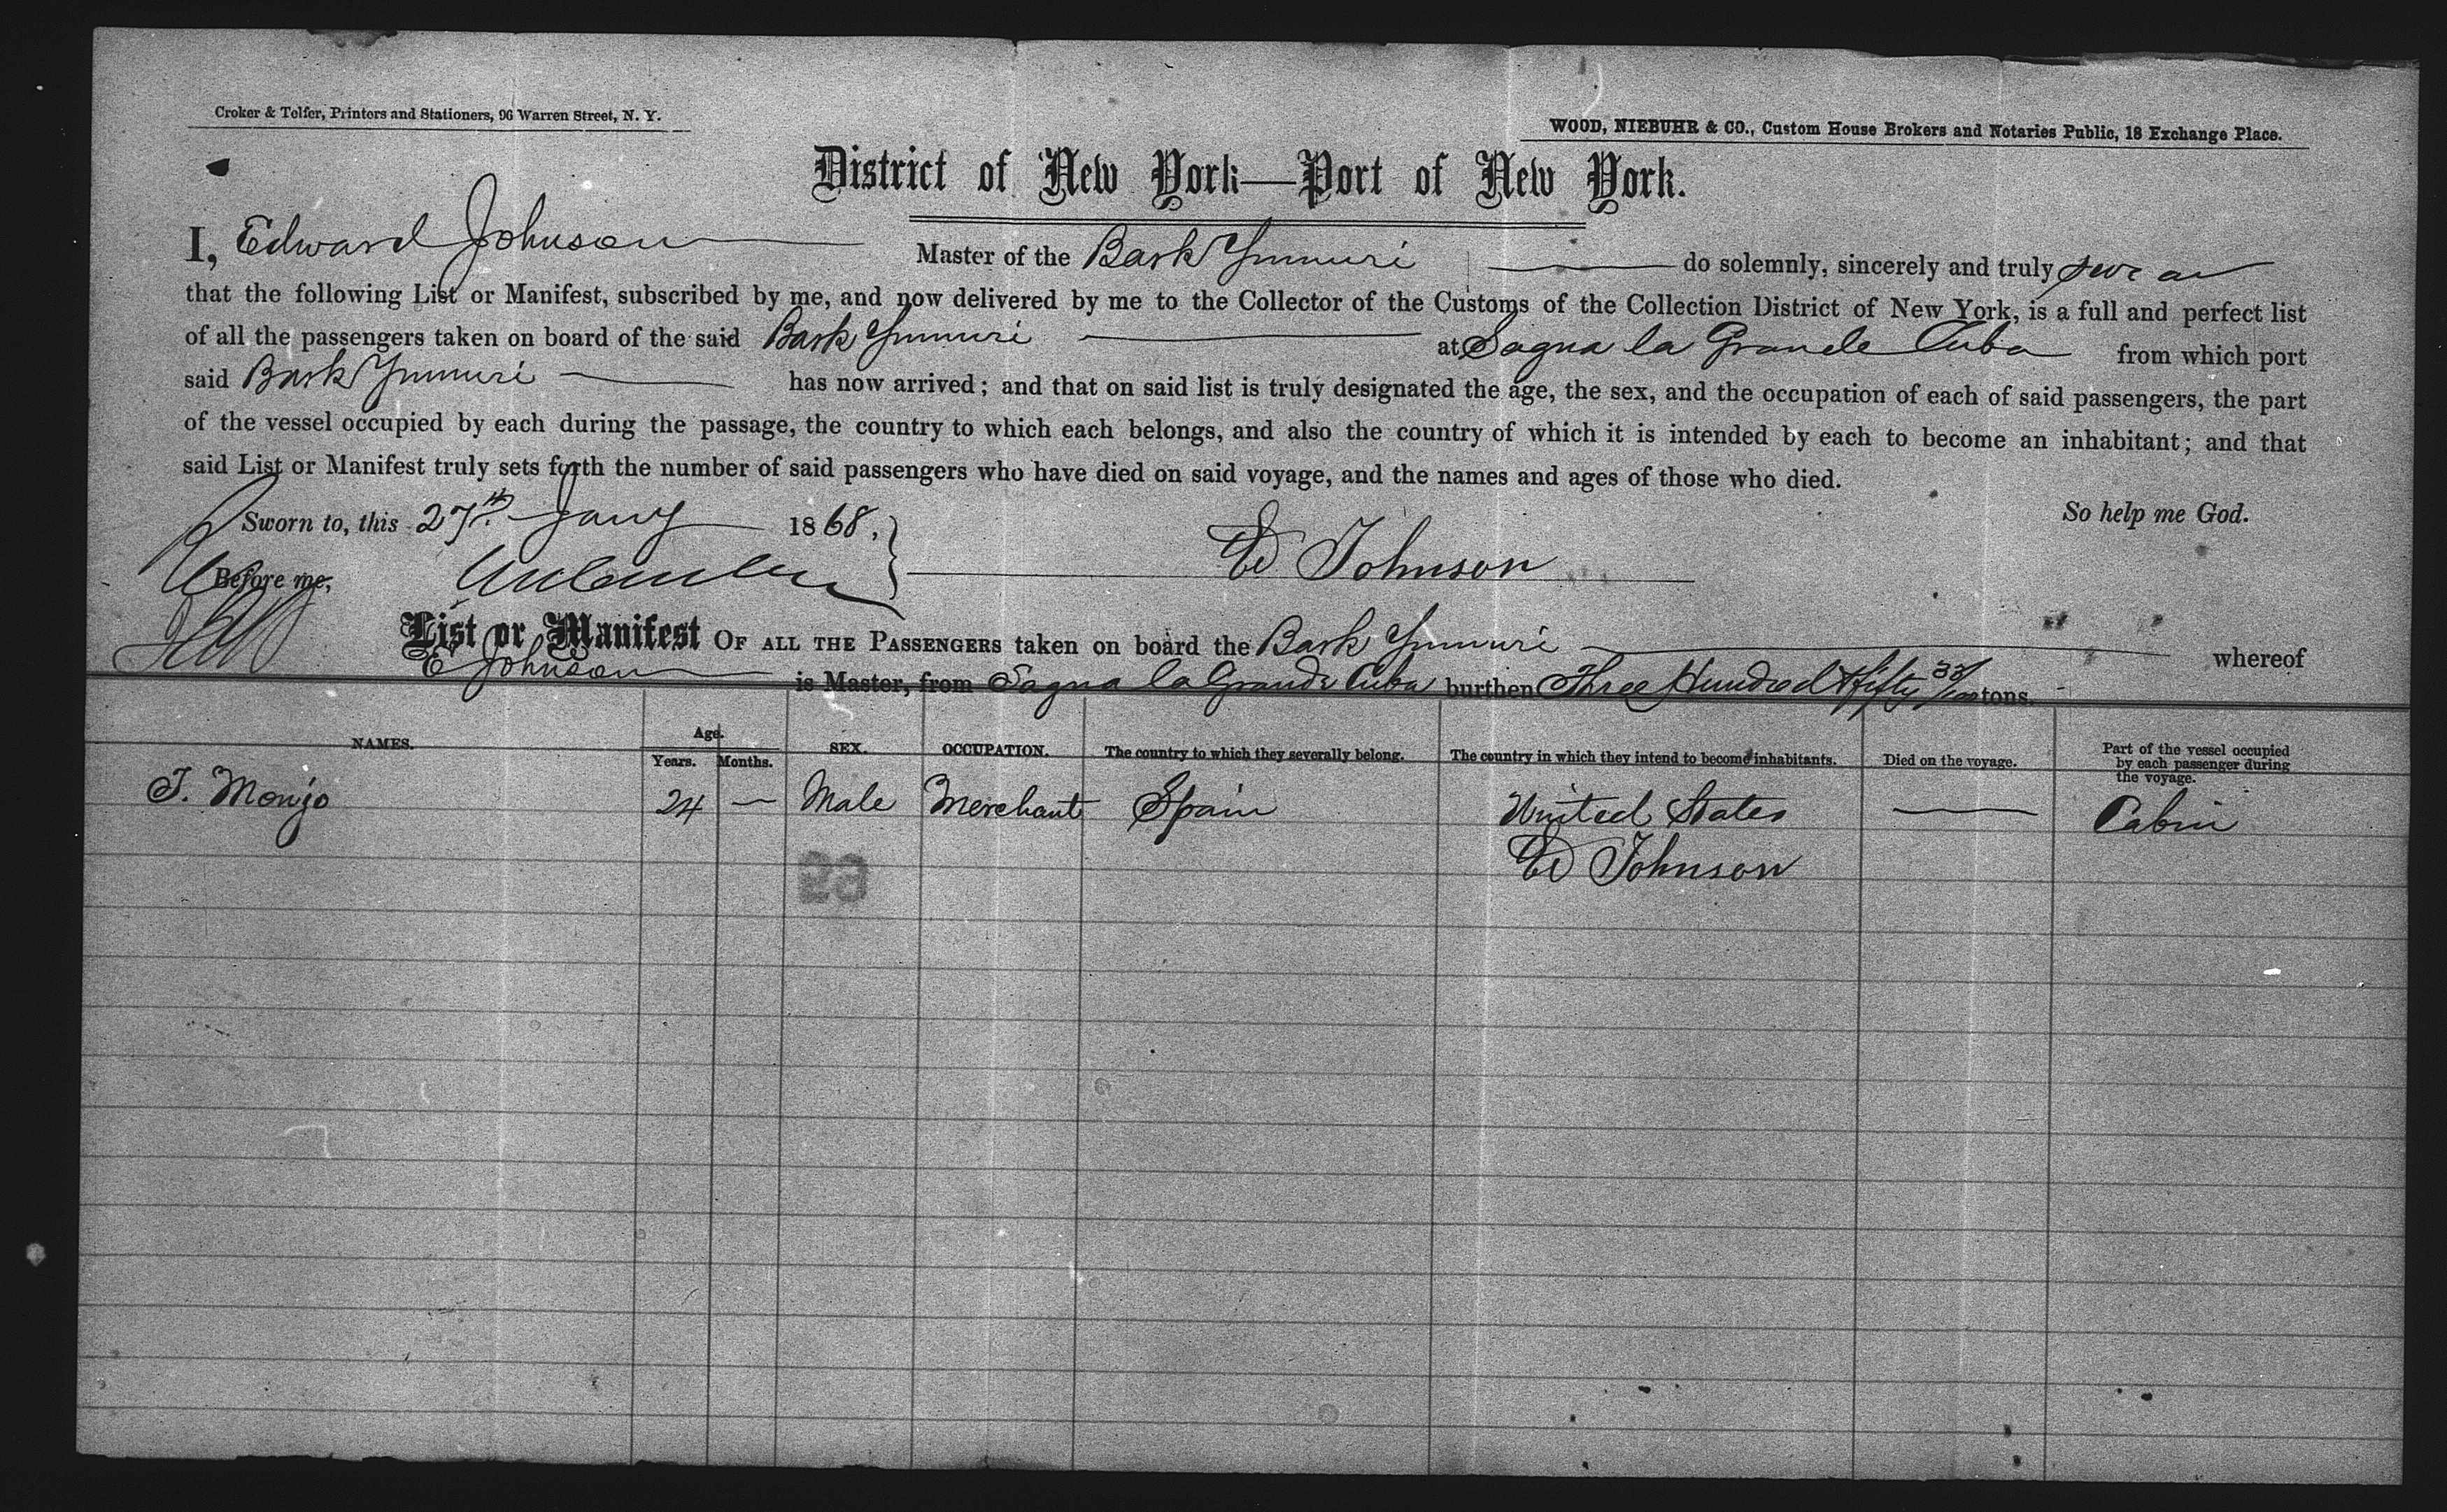 Croker & Telfer, Printers and Stationers, 96 Warren Street, N. Y.
WOOD, NIEBUHR & CO., Custom House Brokers and Notaries Public, 18 Exchange Place.
District of New York—Port of New York.
I, Edward Johnson Master of the Bark Yumuri do solemnly, sincerely and truly swear
that the following List or Manifest, subscribed by me, and now delivered by me to the Collector of the Customs of the Collection District of New York, is a full and perfect list
of all the passengers taken on board of the said Bark Yumuri at Sagua la Grande Cuba from which port
said Bark Yumuri has now arrived; and that on said list is truly designated the age, the sex, and the occupation of each of said passengers, the part
of the vessel occupied by each during the passage, the country to which each belongs, and also the country of which it is intended by each to become an inhabitant; and that
said List or Manifest truly sets forth the number of said passengers who have died on said voyage, and the names and ages of those who died.
So help me God.
Sworn to, this 27th Jany 1868,
Before me, Ed Johnson
List or Manifest OF ALL THE PASSENGERS taken on board the Bark Yumuri whereof
E Johnson is Master, from Sagua la Grande Cuba burthen Three Hundred & fifty 33/100 tons.
NAMES. Age. Years. Months. SEX. OCCUPATION. The country to which they severally belong. The country in which they intend to become inhabitants. Died on the voyage. Part of the vessel occupied by each passenger during the voyage.
T. Monjo 24 — Male Merchant Spain United States — Cabin
Ed Johnson